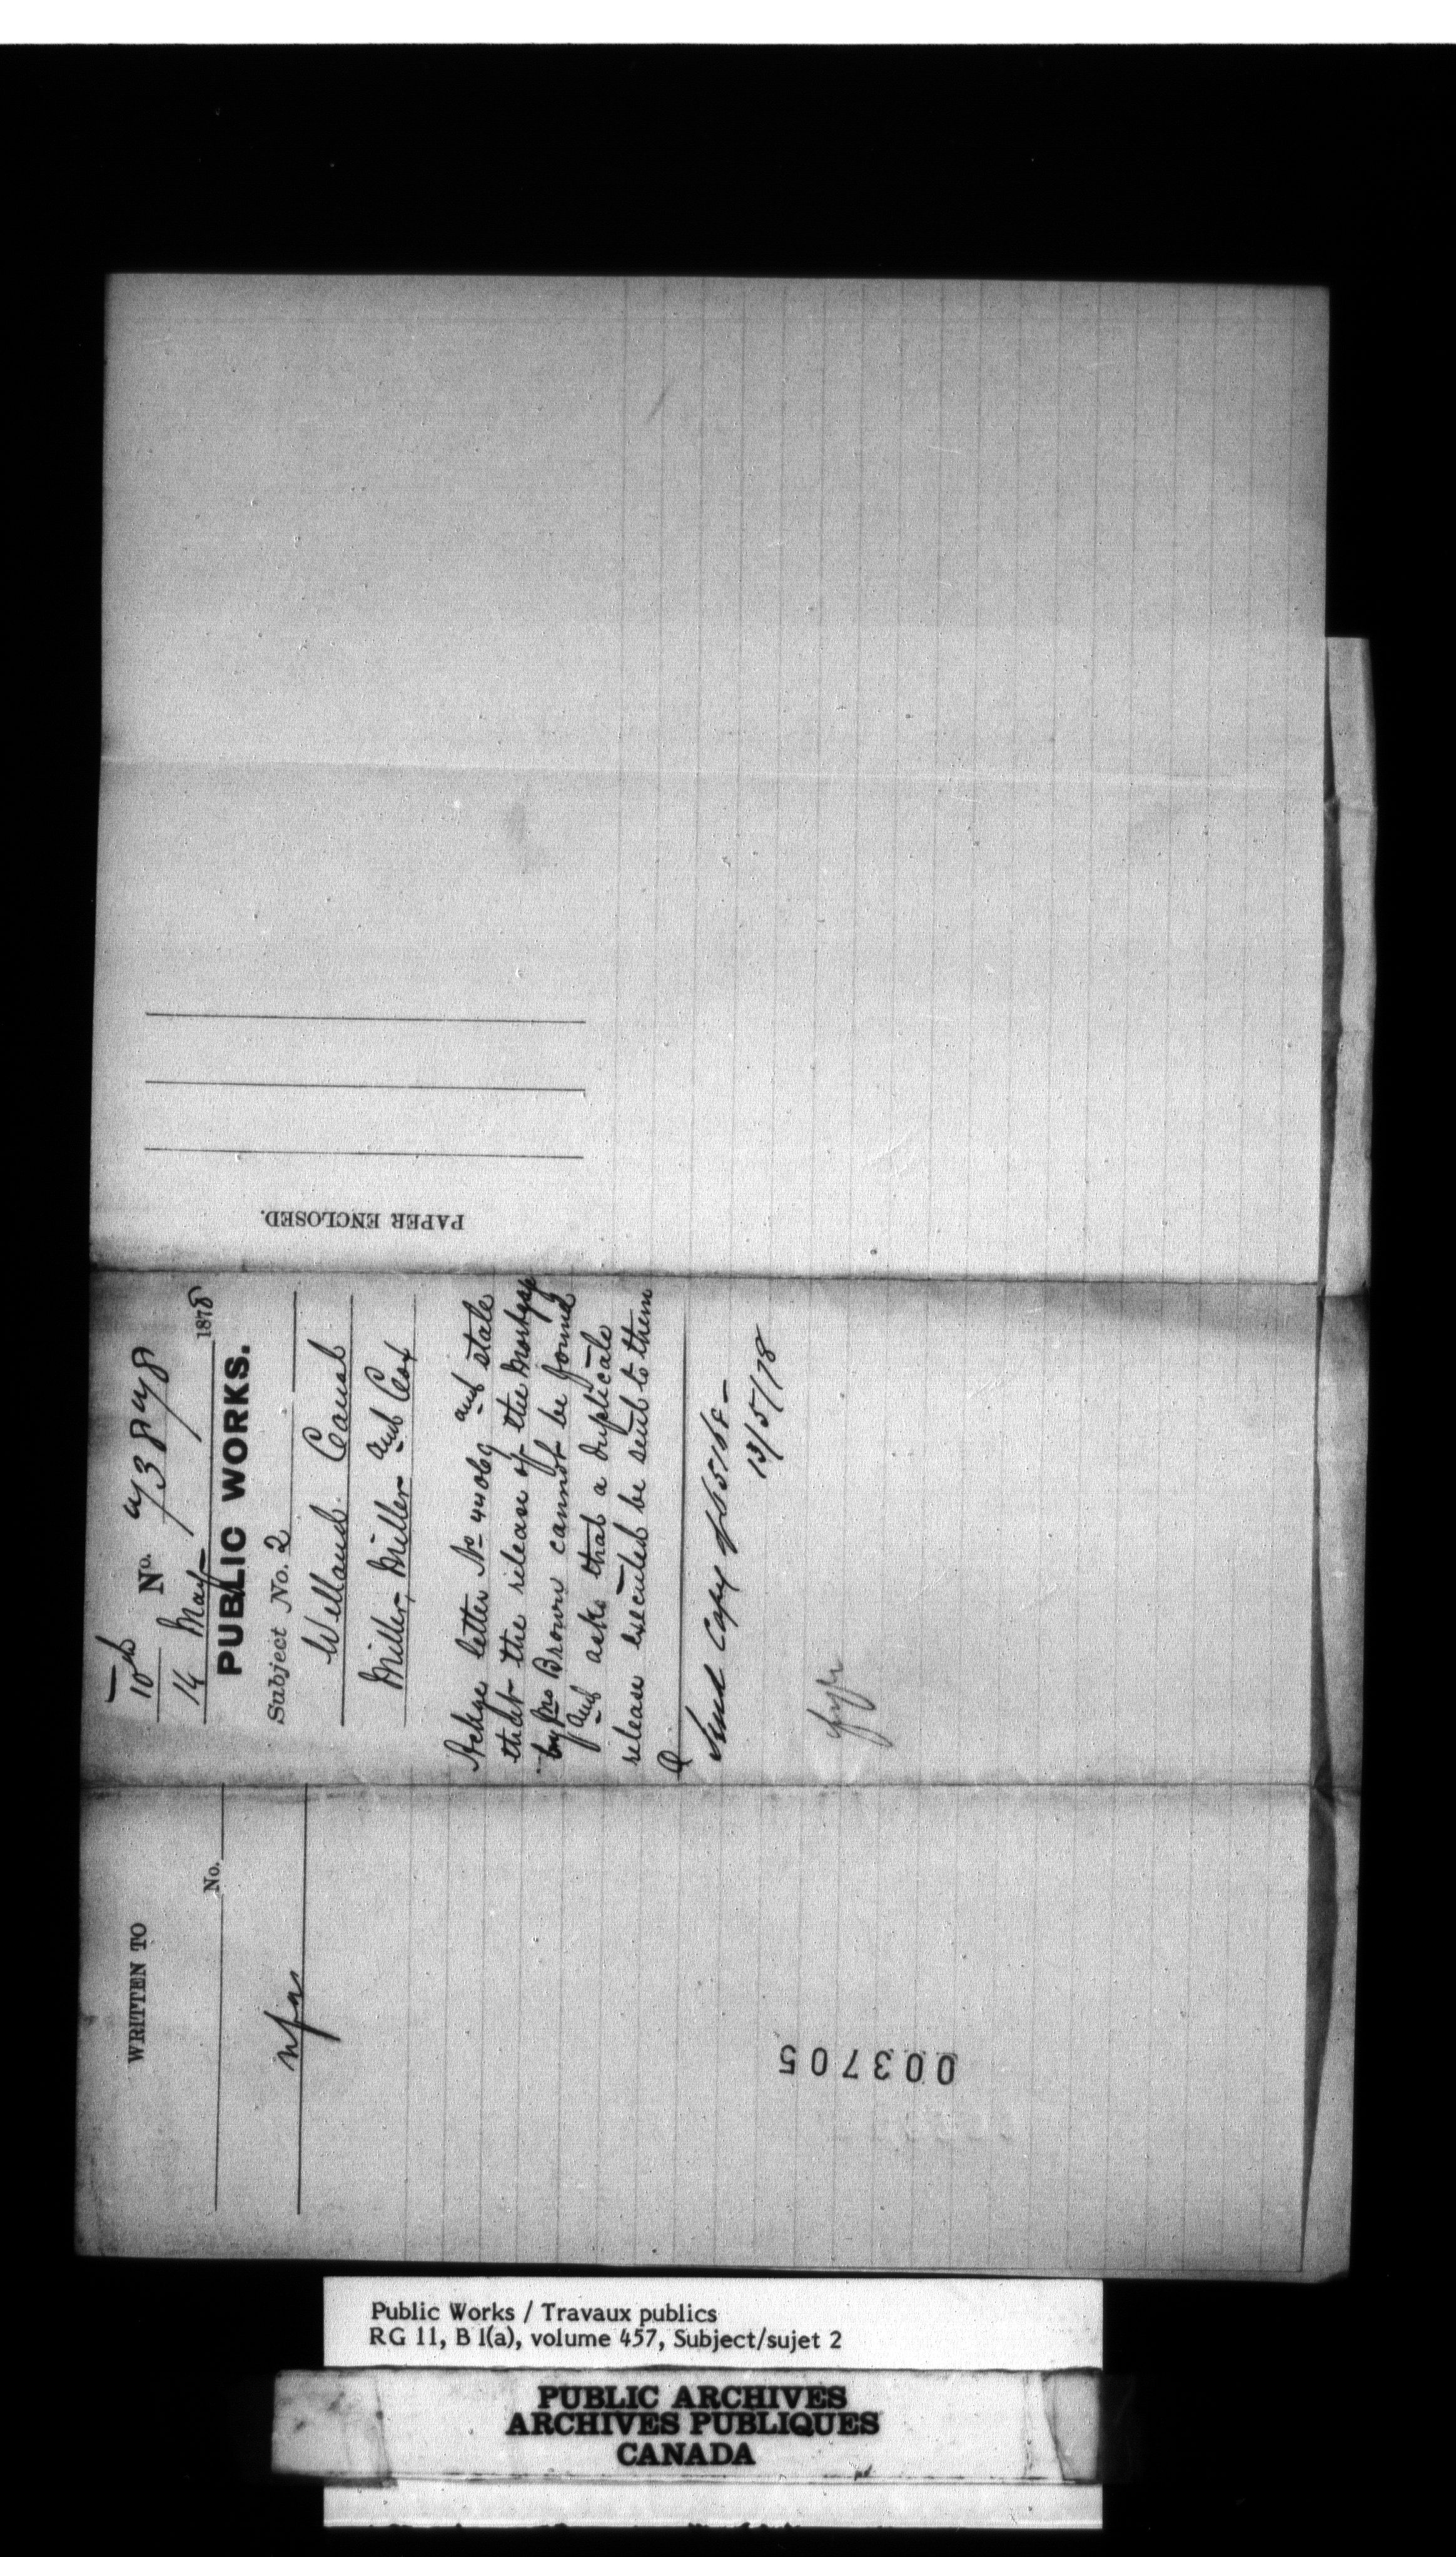 10th
14 May 1878
No. 73878
PUBLIC WORKS.
Subject No. 2
Welland Canal
Miller, Miller and Cox
Ackge letter No 44069 and state
that the release of the Mortgage
by Mrs Brown cannot be found
and asks that a duplicate
release executed be sent to them
Send Copy of
13/5/78
PAPER ENCLOSED.
WRITTEN TO
No.
003705
Public Works / Travaux publics
RG 11, B 1(a), volume 457, Subject/sujet 2
PUBLIC ARCHIVES
ARCHIVES PUBLIQUES
CANADA